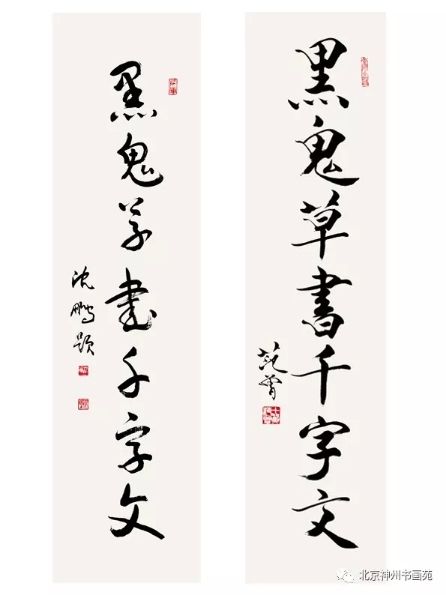 黑鬼草书千字文
范曾
黑鬼草书千字文
沈鹏题
北京神州书画苑